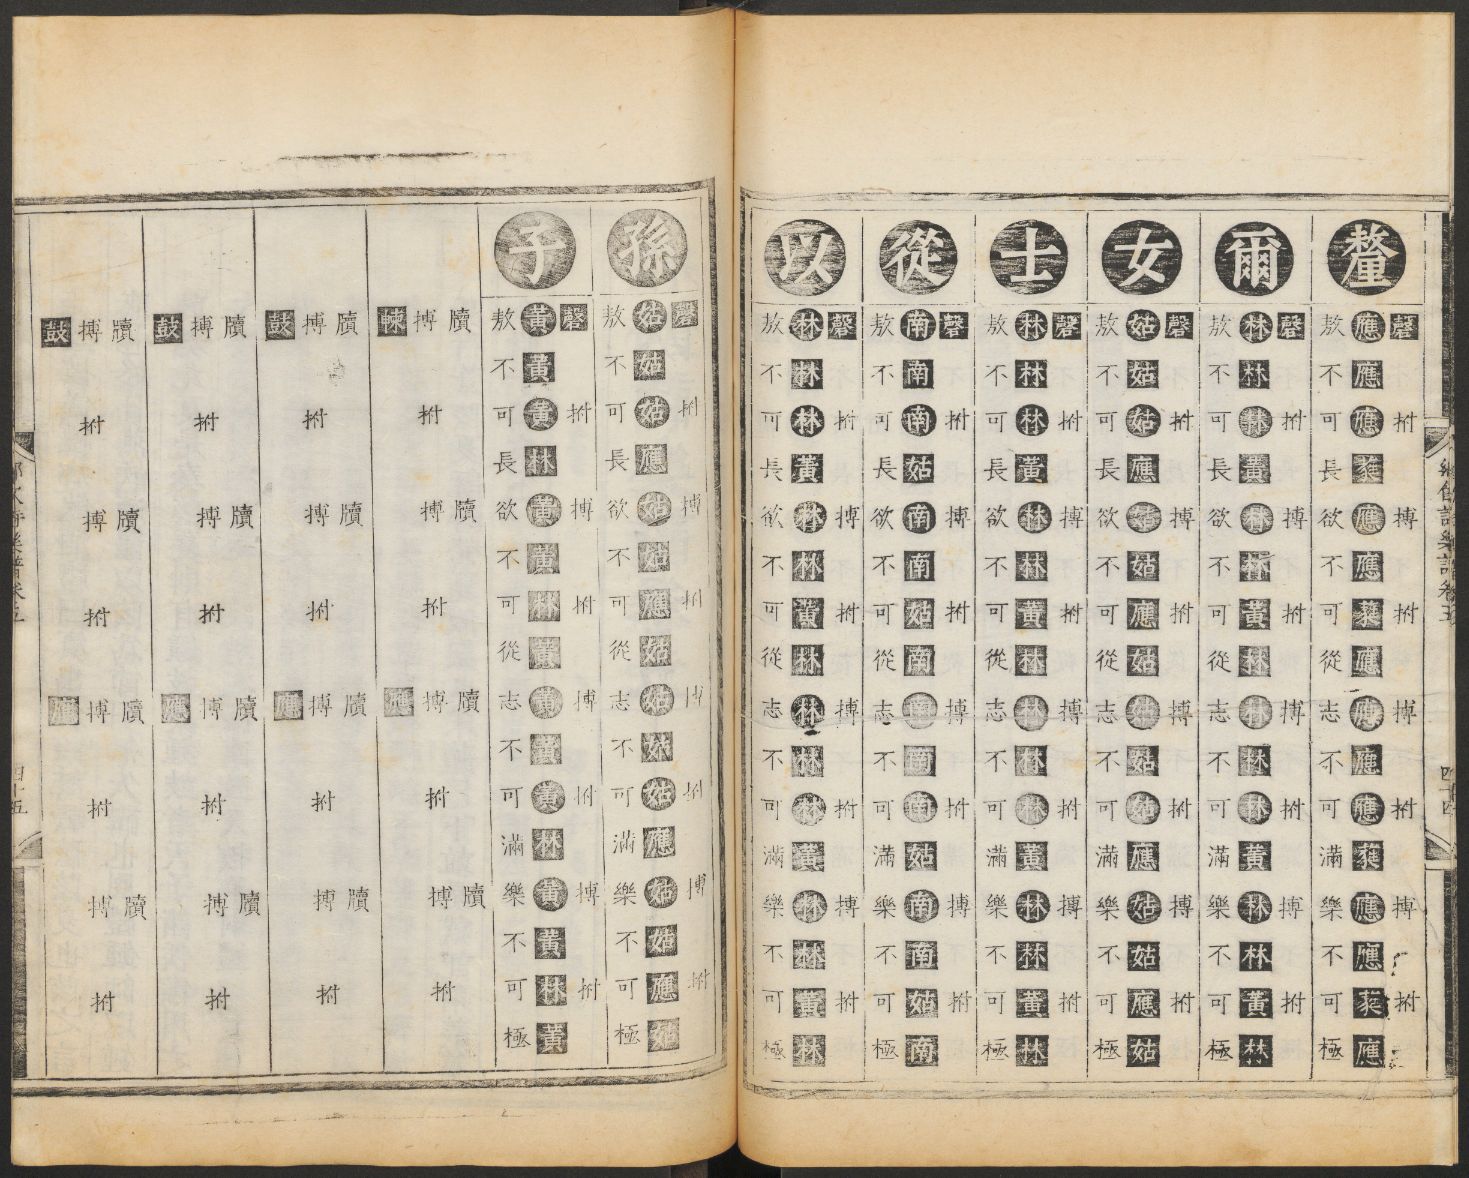 鄉飲詩樂譜卷五
四十四
釐
磬拊搏拊搏拊搏拊
應應應蕤應應蕤應應應應蕤應應蕤應
敖不可長欲不可從志不可滿樂不可極
爾
磬拊搏拊搏拊搏拊
林林林黃林林黃林林林林黃林林黃林
敖不可長欲不可從志不可滿樂不可極
女
磬拊搏拊搏拊搏拊
姑姑姑應姑姑應姑姑姑姑應姑姑應姑
敖不可長欲不可從志不可滿樂不可極
士
磬拊搏拊搏拊搏拊
林林林黃林林黃林林林林黃林林黃林
敖不可長欲不可從志不可滿樂不可極
從
磬拊搏拊搏拊搏拊
南南南姑南南姑南南南南姑南南姑南
敖不可長欲不可從志不可滿樂不可極
以
磬拊搏拊搏拊搏拊
林林林黃林林黃林林林林黃林林黃林
敖不可長欲不可從志不可滿樂不可極
孫
磬拊搏拊搏拊搏拊
姑姑姑應姑姑應姑姑姑姑應姑姑應姑
敖不可長欲不可從志不可滿樂不可極
子
磬拊搏拊搏拊搏拊
黃黃黃林黃黃林黃黃黃黃林黃黃林黃
敖不可長欲不可從志不可滿樂不可極
牘牘牘牘
搏拊搏拊搏拊搏拊
朄應
牘牘牘牘
搏拊搏拊搏拊搏拊
鼓應
牘牘牘牘
搏拊搏拊搏拊搏拊
鼓應
牘牘牘牘
搏拊搏拊搏拊搏拊
鼓應
四十五